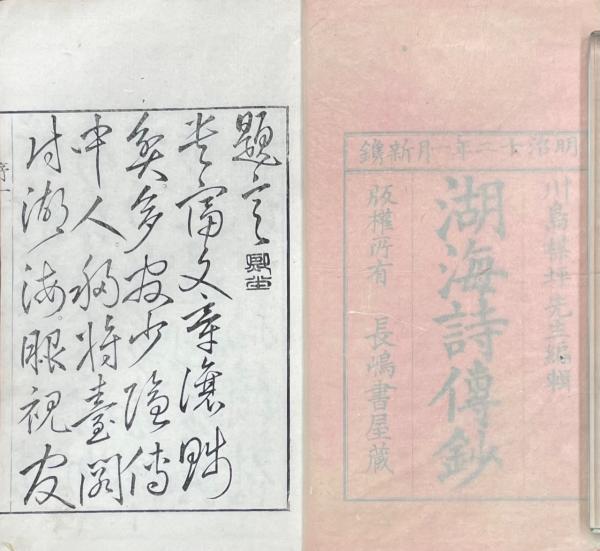 明治十二年一月新鐫
川島楳坪先生編輯
湖海詩傳鈔
版權所有 長嶋書屋藏
題言
貴富文章讓賤
貧多官少隱傳
中人移將臺閣
付湖海眼視官
序一